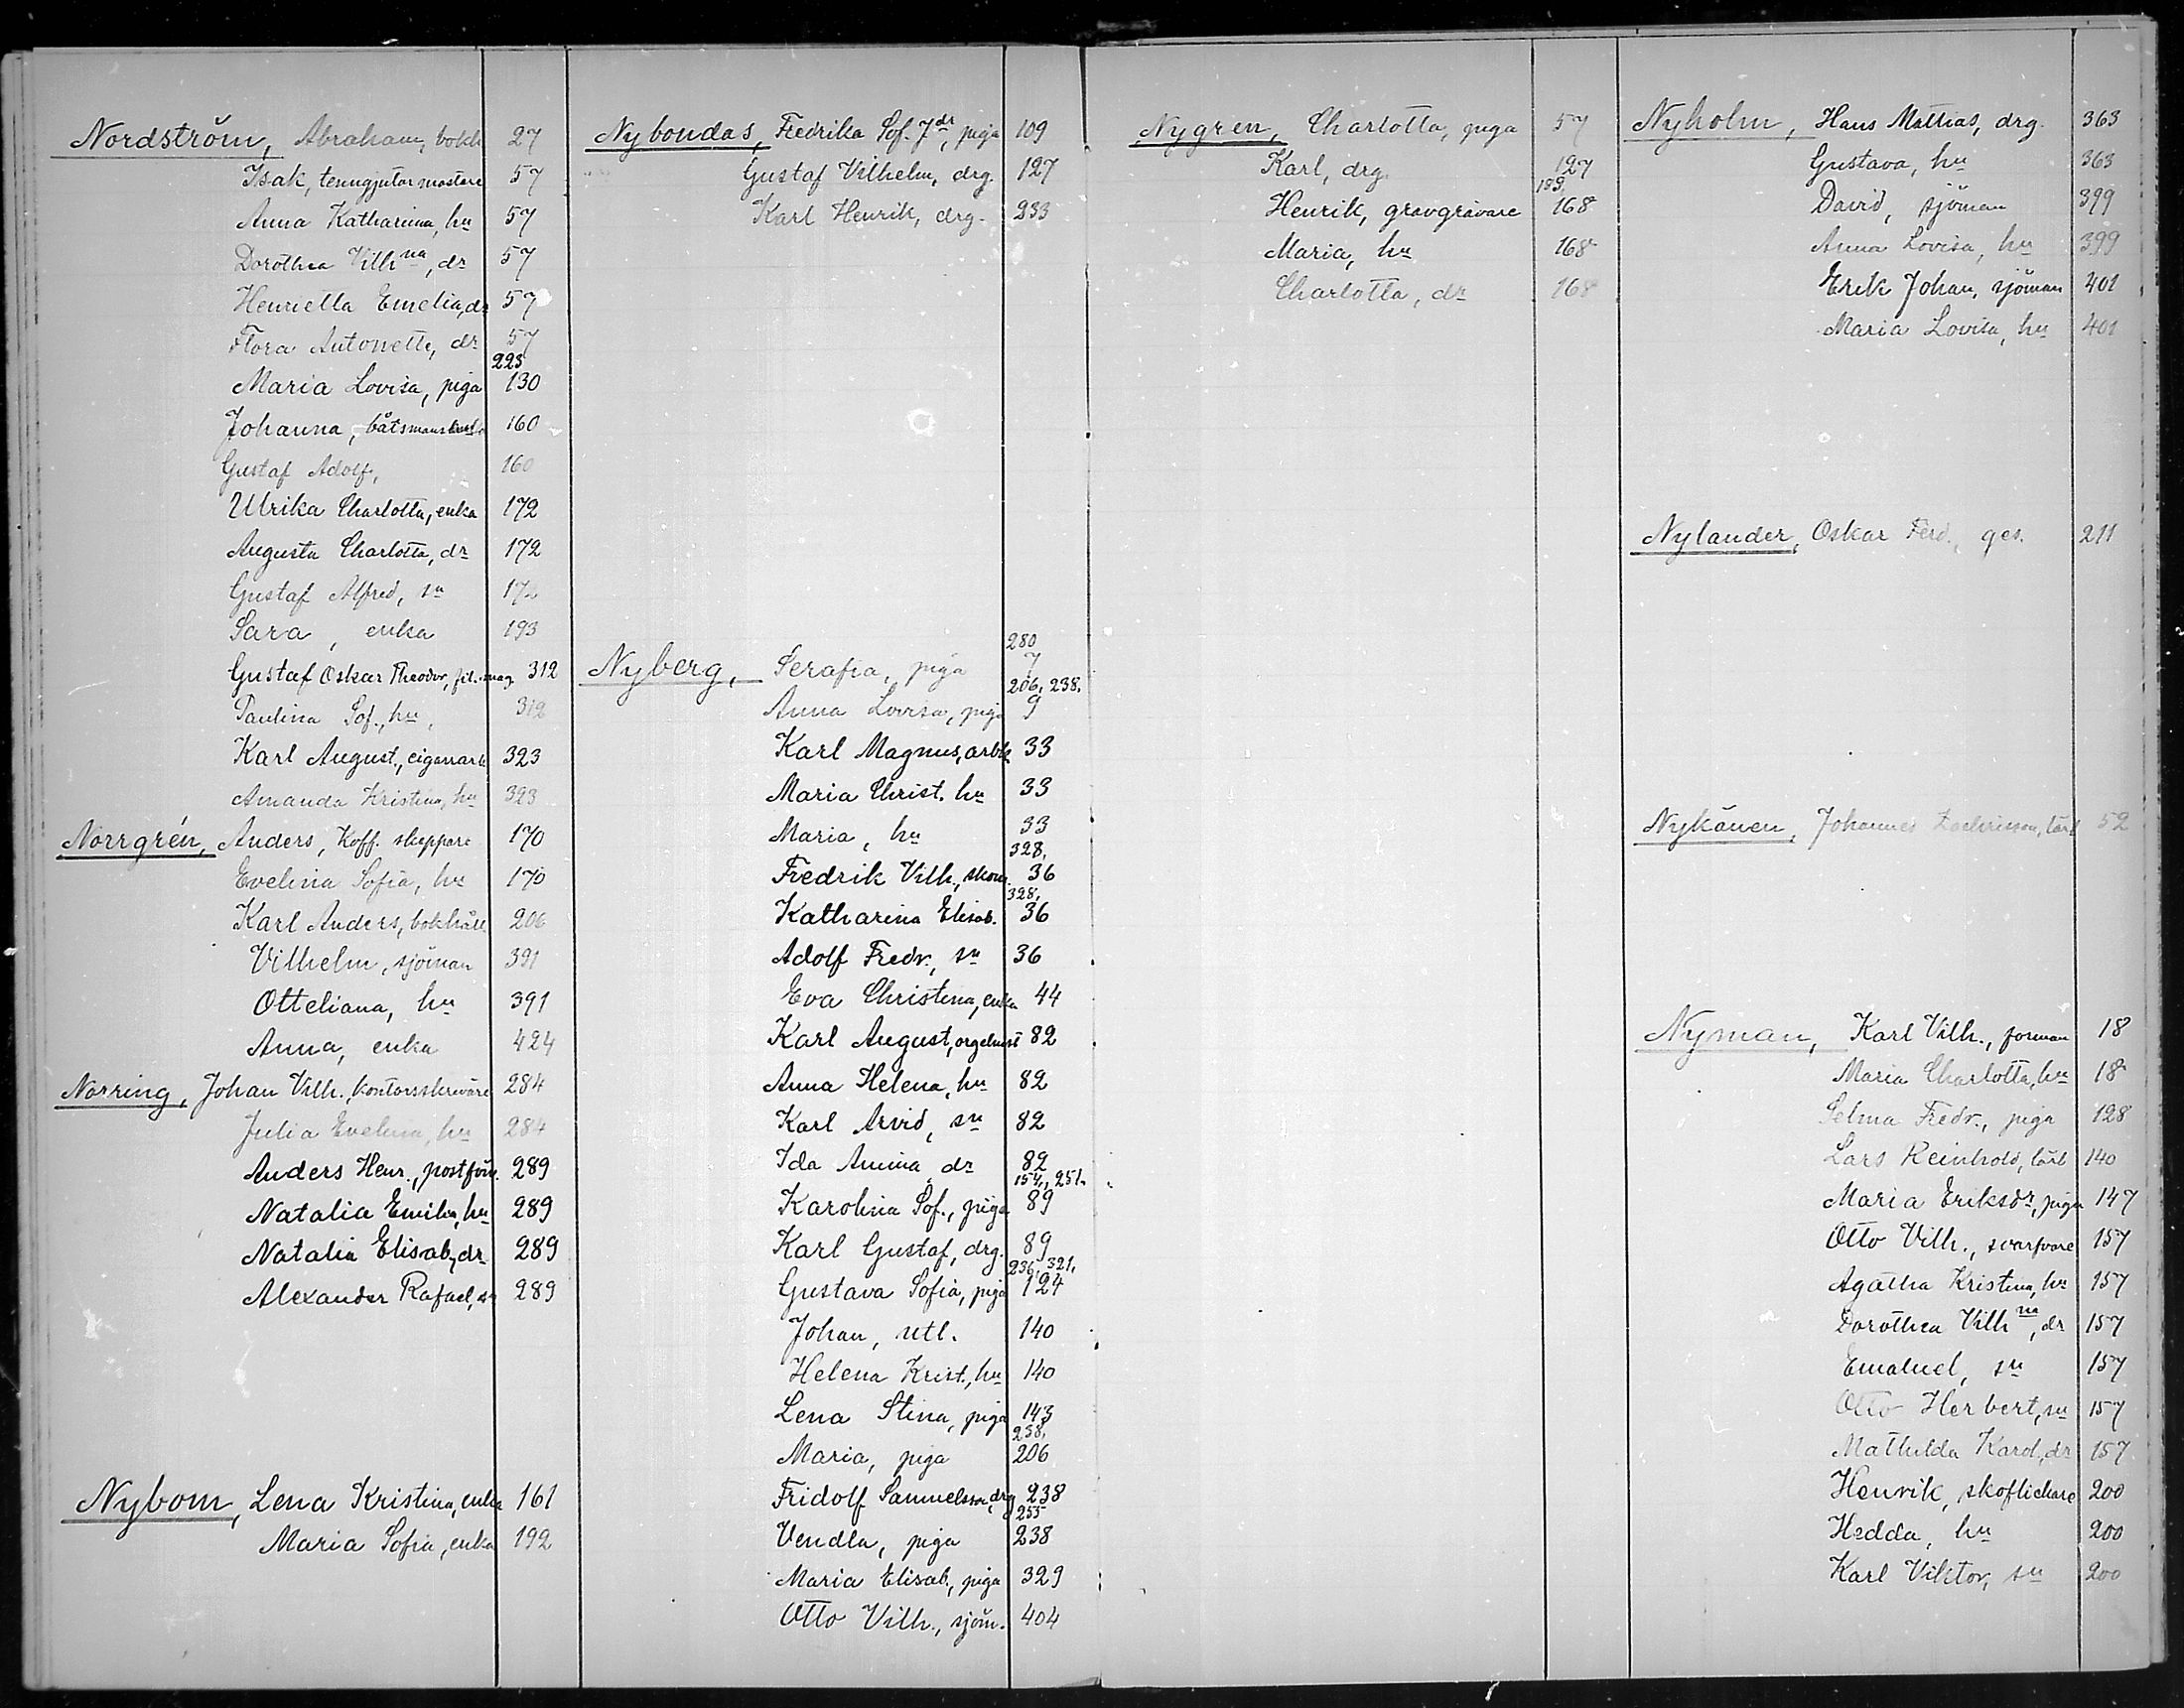 Nordström, Abraham, bokh 27
Isak, tenngjutar mästare 57
Anna Katharina, hu 57
Dorothea Vilhna, dr 57
Henrietta Emelia, dr 57
Flora Antonette, dr 57
223
Maria Lovisa, piga 130
Johanna, båtsmans 160
Gustaf Adolf, 160
Ulrika Charlotta, enka 172
Augusta Charlotta, dr 172
Gustaf Alfred, sn 172
Sara, enka 193
Gustaf Oskar Theodor, fil. mag. 312
Paulina Sof., hu, 312
Karl August., cigarrarb 323
Amanda Kristina, hu 323
Norrgrén, Anders, Koff. skeppare 170
Evelina Sofia, hu 170
Karl Anders, bokhåll 206
Vilhelm, sjöman 391
Otteliana, hu 391
Anna, enka 424
Norring, Johan Vilh., kontorsskrivare 284
Julia Evelina, hu 284
Anders Henr., postförv. 289
Natalia Emilia, hu 289
Natalia Elisab., dr 289
Alexander Rafael, sn 289
Nybom, Lena Kristina, enka 161
Maria Sofia, enka 192
Nybondas, Fredrika Sof. Jdr, piga 109
Gustaf Vilhelm, drg. 127
Karl Henrik, drg. 233
280
Nyberg, Serafia, piga 7
206, 238.
Anna Lovisa, piga 9
Karl Magnus, arbk 33
Maria Christ. hu 33
Maria, hu 33
328,
Fredrik Vilh., skom. 36
328,
Katharina Elisab. 36
Adolf Fredr., sn 36
Eva Christina, enka 44
Karl August, orgelnist 82
Anna Helena, hu 82
Karl Arvid, sn 82
Ida Amina, dr 82
154, 251.
Karolina Sof., piga 89
Karl Gustaf, drg. 89
236, 321,
Gustava Sofia, piga 124
Johan, utl. 140
Helena Krist., hu 140
Lena Stina, piga 143
238,
Maria, piga 206
Fridolf Samuelsson, drg 238
255
Vendla, piga 238
Maria Elisab., piga 329
Otto Vilh., sjöm. 404
Nygren, Charlotta, piga 57
Karl, drg. 127
189,
Henrik, gravgrävare 168
Maria, hu 168
Charlotta, dr 168
Nyholm, Hans Mattias, drg. 363
Gustava, hu 363
David, sjöman 399
Anna Lovisa, hu 399
Erik Johan, sjöman 401
Maria Lovisa, hu 401
Nylander, Oskar Ferd., ges. 211
Nykänen, Johannes lärl 52
Nyman, Karl Vilh., forman 18
Maria Charlotta, hu 18
Selma Fredr., piga 128
Lars Reinhold, lärl 140
Maria Eriksdr, piga 147
Otto Vilh., svarfvare 157
Agatha Kristina, hu 157
Dorothea Vilhna, dr 157
Emanuel, sn 157
Otto Herbert, sn 157
Mathilda Karol, dr 157
Henrik, skoflickare 200
Hedda, hu 200
Karl Viktor, sn 200